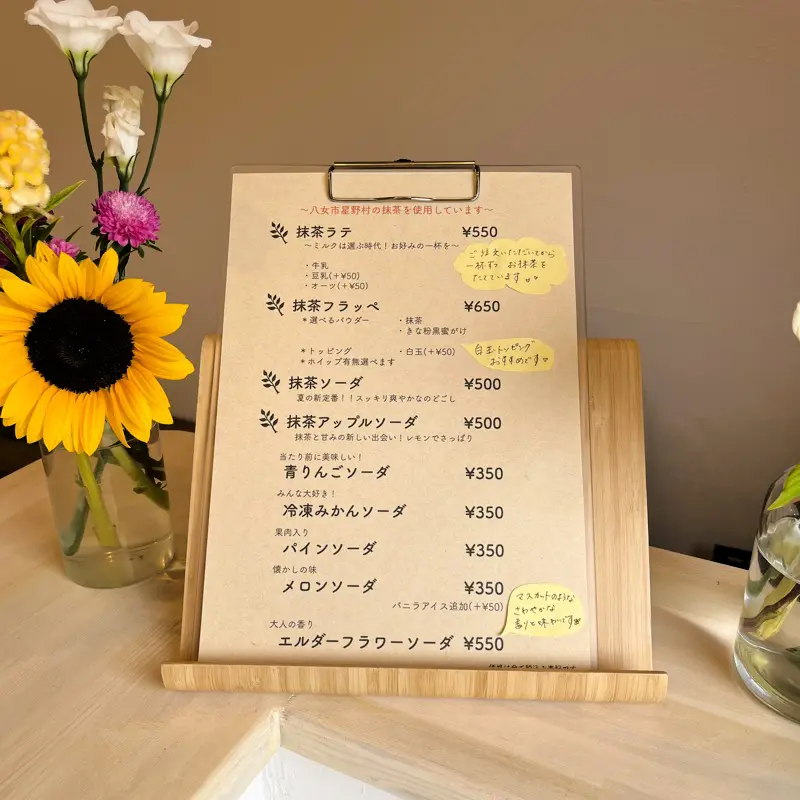 ～八女市星野村の抹茶を使用しています～
抹茶ラテ ¥550
～ミルクは選ぶ時代！お好みの一杯を～
・牛乳
・豆乳(+¥50)
・オーツ(+¥50)
ご注文いただいてから
一杯ずつ お抹茶を
たてています
抹茶フラッペ ¥650
＊選べるパウダー ・抹茶
・きな粉黒蜜がけ
＊トッピング ・白玉(+¥50)
＊ホイップ有無選べます
白玉トッピング
おすすめです♡
抹茶ソーダ ¥500
夏の新定番！！スッキリ爽やかなのどごし
抹茶アップルソーダ ¥500
抹茶と甘みの新しい出会い！レモンでさっぱり
当たり前に美味しい！
青りんごソーダ ¥350
みんな大好き！
冷凍みかんソーダ ¥350
果肉入り
パインソーダ ¥350
懐かしの味
メロンソーダ ¥350
バニラアイス追加(+¥50)
大人の香り
エルダーフラワーソーダ ¥550
マスカットのような
さわやかな
香りと味わいです